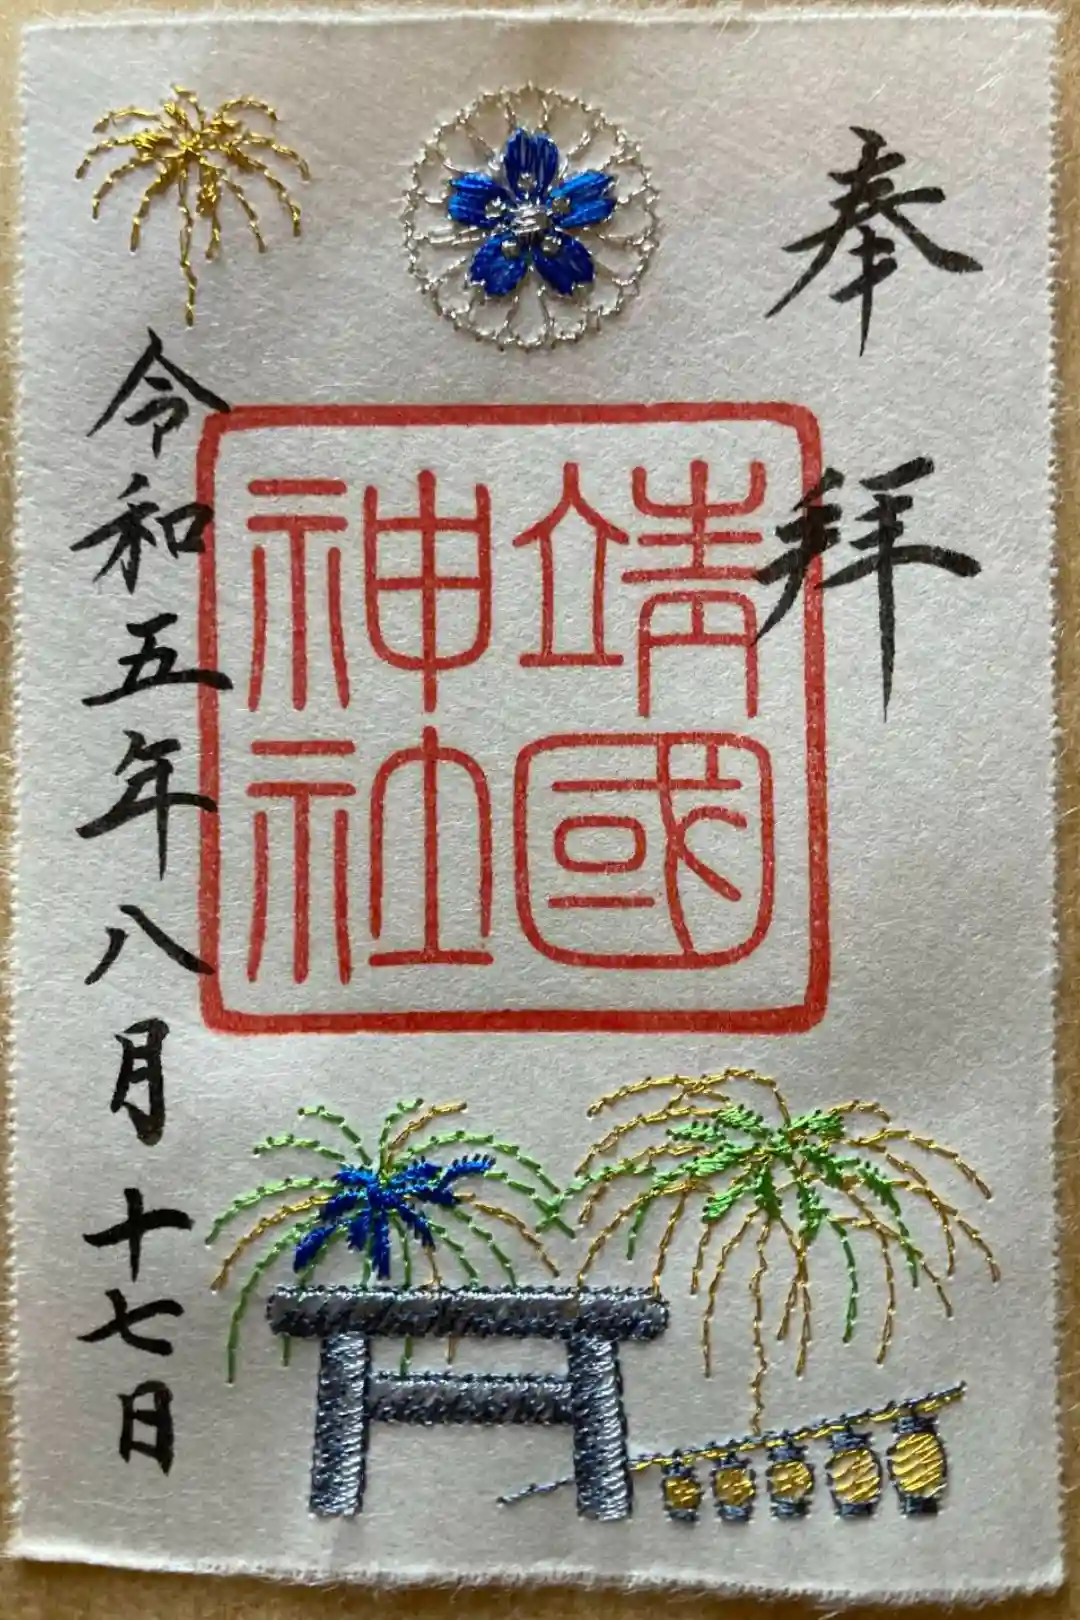 奉拝
靖國
神社
令和五年八月十七日